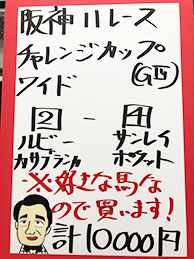 阪神11レース
チャレンジカップ
(GⅢ)
ワイド
2-4
ルビーカサブランカ
サンレイポケット
※好きな馬なので買います!
計10000円